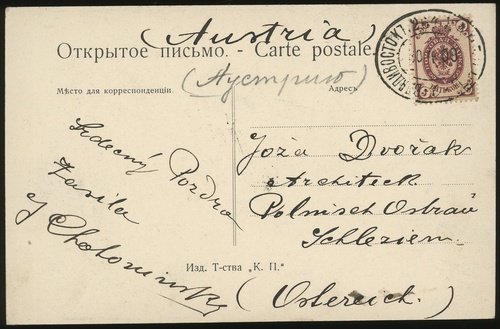 (Austria)
Открытое письмо. - Carte postale.
(Аустрию)
Мѣсто для корреспонденціи.
Адресъ
ВЛАДИВОСТОК
Srdečný Pozdra
Zasila
J Chotominsky
Joža Dvořak
Architeck
Polnisch Ostrau
Schlezien.
(Ostereich.)
Изд. Т-ства „К. П."